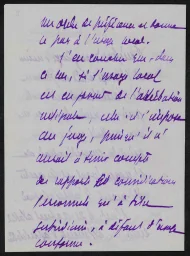 un ordre de préférence et donne
le pas à l'usage local.
J'en conclus que, dans
ce cas, si l'usage local
est en faveur de l'
, elle s'impose
au juge, puisqu'il n'
aurait à tenir compte
de rapports et considérations
personnels qu'à titre
subsidiaire, à défaut d'usage
conforme.